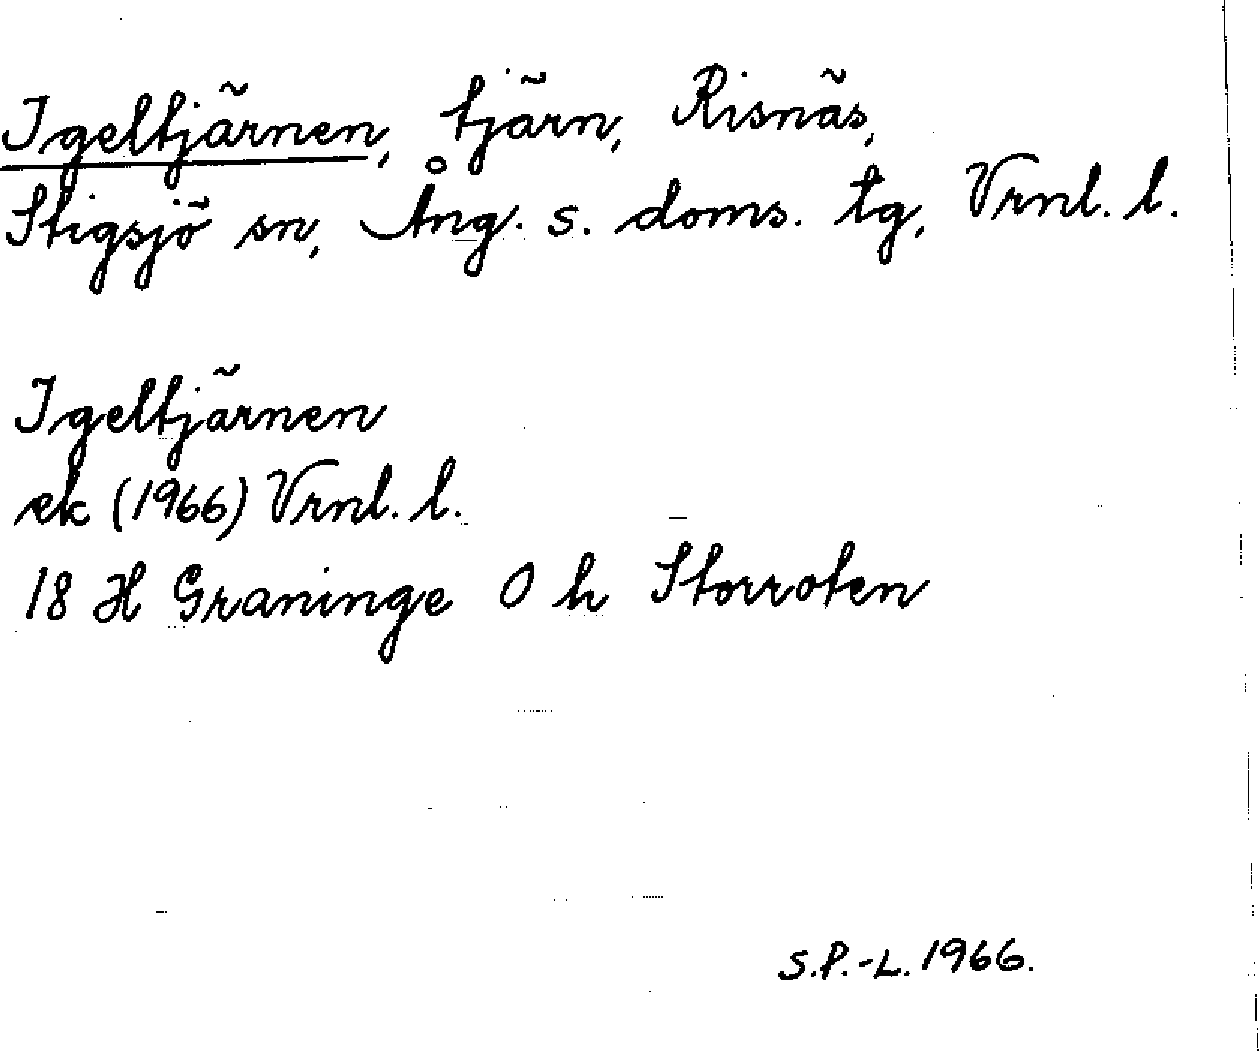 Igeltjärnen, tjärn, Risnäs,
Stigsjö sn, Ång. s. doms. tg, Vrnl. l.
Igeltjärnen
ek (1966) Vrnl. l.
18 H Graninge O h Storroten
S.P.-L. 1966.